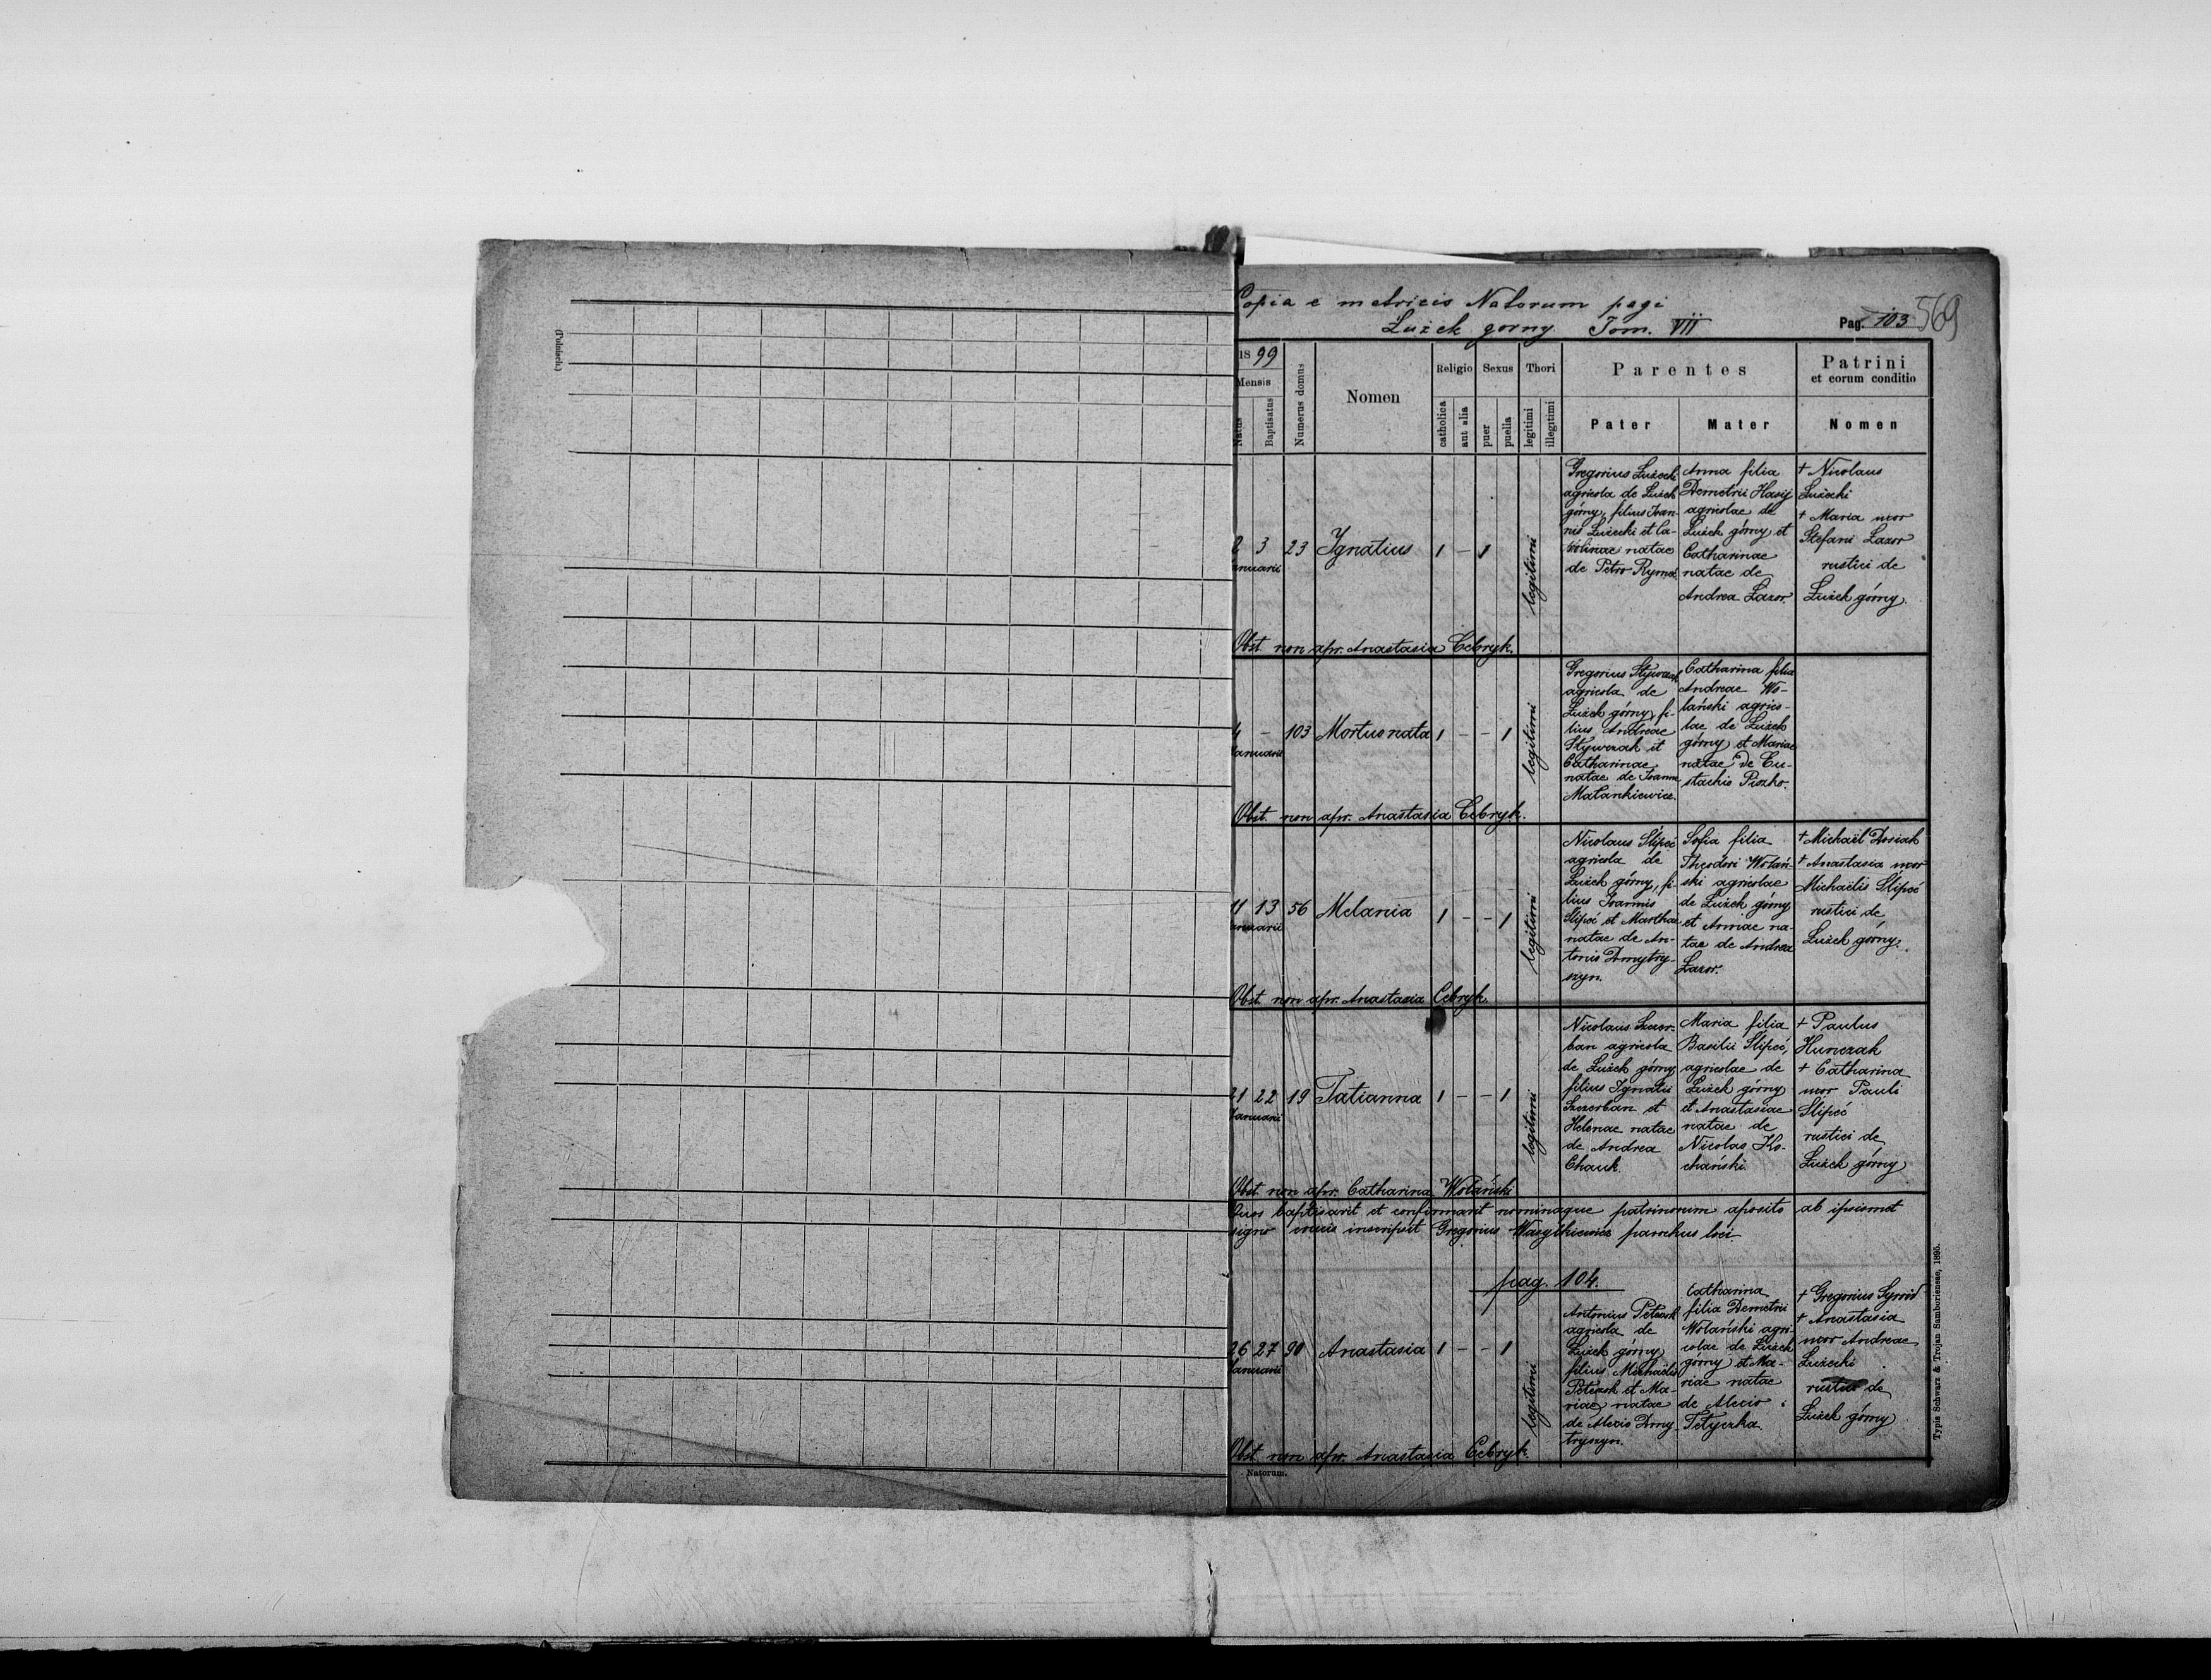 (Polnisch.)
Copia e metricis Natorum pagi
Łużek gorny Tom. VII
Pag. 103
569
18 99
Mensis
Natus
Baptisatus
Numerus domus
Nomen
Religio
catholica
aut alia
Sexus
puer
puella
Thori
legitimi
illegitimi
Parentes
Pater
Mater
Patrini
et eorum conditio
Nomen
2 3 23 Ignatius 1 – 1
Januarii
legitimi
Gregorius Łużecki
agricola de Łużek
górny, filius Joan-
nis Łużecki et Ca-
rolinae natae
de Petro
Anna filia
Demetrii Hasij
agricolae de
Łużek górny et
Catharinae
natae de
Andrea Łazor.
+ Nicolaus
Łużecki
+ Maria uxor
Stefani Łazor
rustici de
Łużek górny.
Obst. non apr. Anastasia Cebryk.
4 – 103 Mortuonata 1 – – 1
Januarii
legitimi
Gregorius Stywczak
agricola de
Łużek górny, fi-
lius Andreae
Stywczak et
Catharinae
natae de Joanne
Matankiewicz.
Catharina filia
Andreae Wo-
lański agrico-
lae de Łużek
górny et Mariae
natae de Eu-
stachio Piszko.
Obst. non apr. Anastasia Cebryk.
11 13 56 Melania 1 – – 1
Januarii
legitimi
Nicolaus Slipeć
agricola de
Łużek górny, fi-
lius Joannis
Slipeć et Marthae
natae de An-
tonio Dmytry-
szyn.
Sofia filia
Theodori Wolań-
ski agricolae
de Łużek górny
et Annae na-
tae de Andrea
Łazor.
+ Michaël Dosiak
+ Anastasia uxor
Michaëlis Slipeć
rustici de
Łużek górny.
Obst. non apr. Anastasia Cebryk.
21 22 19 Tatianna 1 – – 1
Januarii
legitimi
Nicolaus Szczer-
ban agricola
de Łużek górny
filius Ignatii
Szczerban et
Helenae natae
de Andrea
Chauk.
Maria filia
Basilii Slipeć,
agricolae de
Łużek górny
et Anastasiae
natae de
Nicolao Ko-
chański.
+ Paulus
Hunczak
+ Catharina
uxor Pauli
Slipeć
rustici de
Łużek górny
Obst. non apr. Catharina Wolański
Quos baptisavit et confirmavit nominaque patrinorum aposito ab ipsismet
signo crucis inscripsit Gregorius Wasylkiewicz parochus loci.
pag. 104.
26 27 90 Anastasia 1 – – 1
Januarii
legitimi
Antonius Petczak
agricola de
Łużek górny
filius Michaëlis
Petczak et Ma-
riae natae
de Alexio Dmy-
tryszyn.
Catharina
filia Demetrii
Wolański agri-
colae de Łużek
górny et Ma-
riae natae
de Alexio
Tetyczka.
+ Gregorius Syroid
+ Anastasia
uxor Andreae
Łużecki
rustici de
Łużek górny
Obst. non apr. Anastasia Cebryk.
Natorum.
Typis Schwarz & Trojan Samboriensae, 1895.